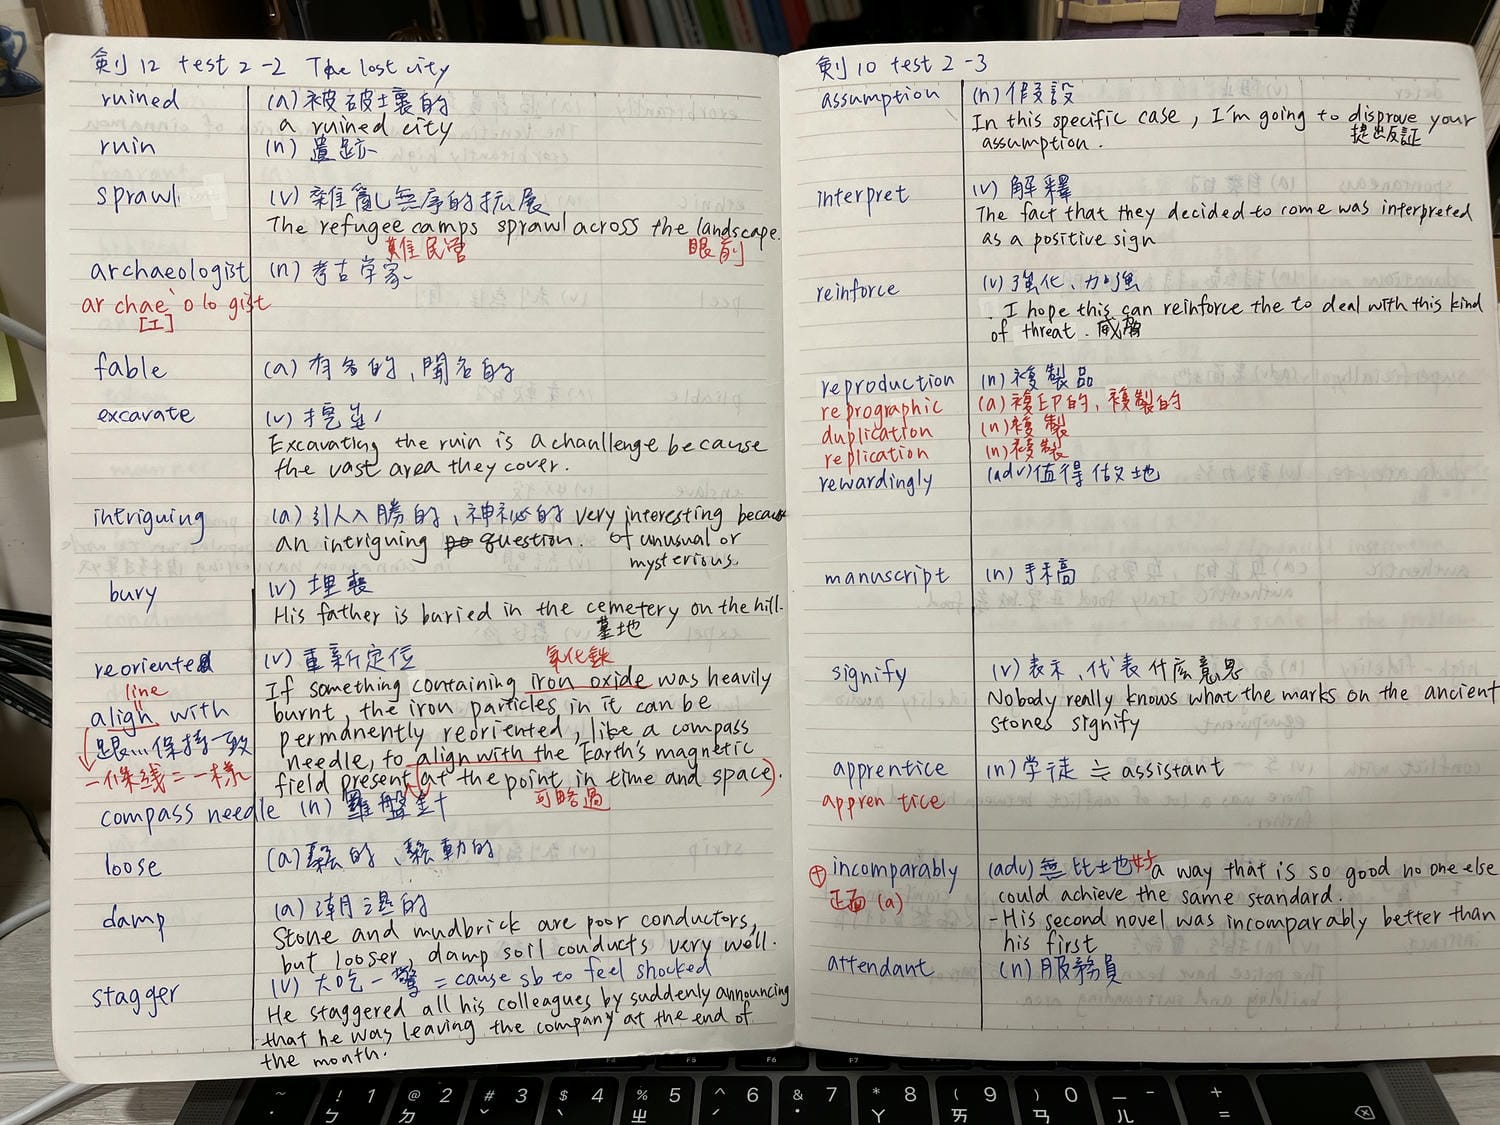 劍12 test 2-2 The lost city
ruined (a) 被破壞的
a ruined city
ruin (n) 遺跡
sprawl (v) 雜亂無序的拡展
The refugee camps sprawl across the landscape.
難民營 眼前
archaeologist (n) 考古学家
ar chae`olo gist
[I]
fable (a) 有名的、聞名的
excavate (v) 挖掘
Excavating the ruin is a chanllenge because
the vast area they cover.
intriguing (a) 引人入勝的、神祕的 very interesting because
an intriguing question. of unusual or
mysterious.
bury (v) 埋葬
His father is buried in the cemetery on the hill.
墓地
reoriente (v) 重新定位 氧化鉄
line
If something containing iron oxide was heavily
align with burnt, the iron particles in it can be
permanently reoriented, like a compass
跟...保持一致 needle, to align with the Earth's magnetic
一條线=一樣 field present (at the point in time and space).
可略過
compass needle (n) 羅盤針
loose (a) 鬆的、鬆動的
damp (a) 潮濕的
Stone and mudbrick are poor conductors,
but looser, damp soil conducts very well.
stagger (v) 大吃一驚 = cause sb to feel shocked
He staggered all his colleagues by suddenly announcing
that he was leaving the company at the end of
the month.
劍10 test 2-3
assumption (n) 假設
In this specific case, I'm going to disprove your
assumption. 提出反証
interpret (v) 解釋
The fact that they decided to come was interpreted
as a positive sign
reinforce (v) 強化、加強
I hope this can reinforce the to deal with this kind
of threat. 威脅
reproduction (n) 複製品
reprographic (a) 複印的, 複製的
duplication (n) 複製
replication (n) 複製
rewardingly (adv) 值得做地
manuscript (n) 手稿
signify (v) 表示、代表什麼意思
Nobody really knows what the marks on the ancient
stones signify
apprentice (n) 学徒 ≒ assistant
appren tice
+ incomparably (adv) 無比地好 a way that is so good no one else
正面 (a) could achieve the same standard.
-His second novel was incomparably better than
his first
attendant (n) 服務員
F6 F7
~ ! 1 @ 2 # 3 $ 4 % 5 ^ 6 & 7 * 8 ( 9 ) 0 — - + =
ㄅ ㄉ ˇ ˋ ㄓ ˊ ˙ ㄚ ㄞ ㄢ ㄦ